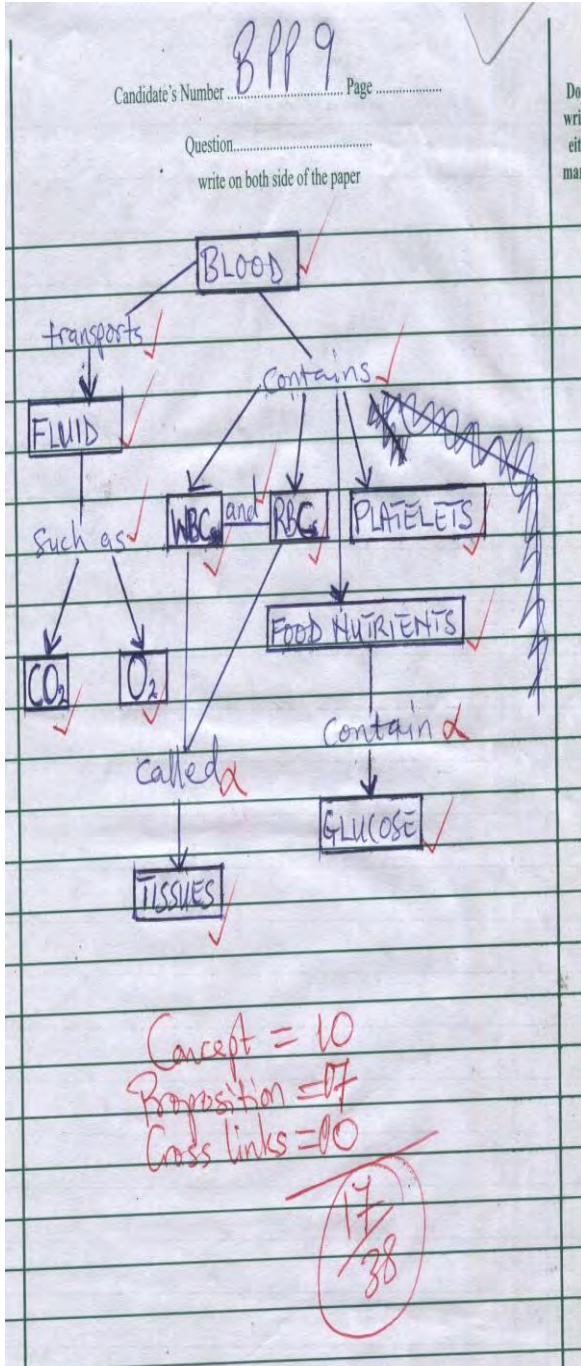 BPP 9
Candidate's Number ........................ Page ..................
Question.......................................
write on both side of the paper
Do
wri
eit
mar
BLOOD
transports
contains
FLUID
Such as
WBCs and RBCs PLATELETS
FOOD NUTRIENTS
CO₂ O₂
contain
called
GLUCOSE
TISSUES
Concept = 10
Proposition = 07
Cross links = 00
17/38